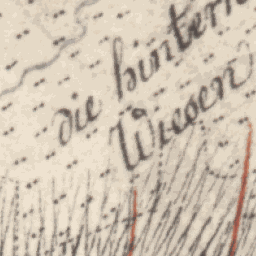 die hintern
Wiesen